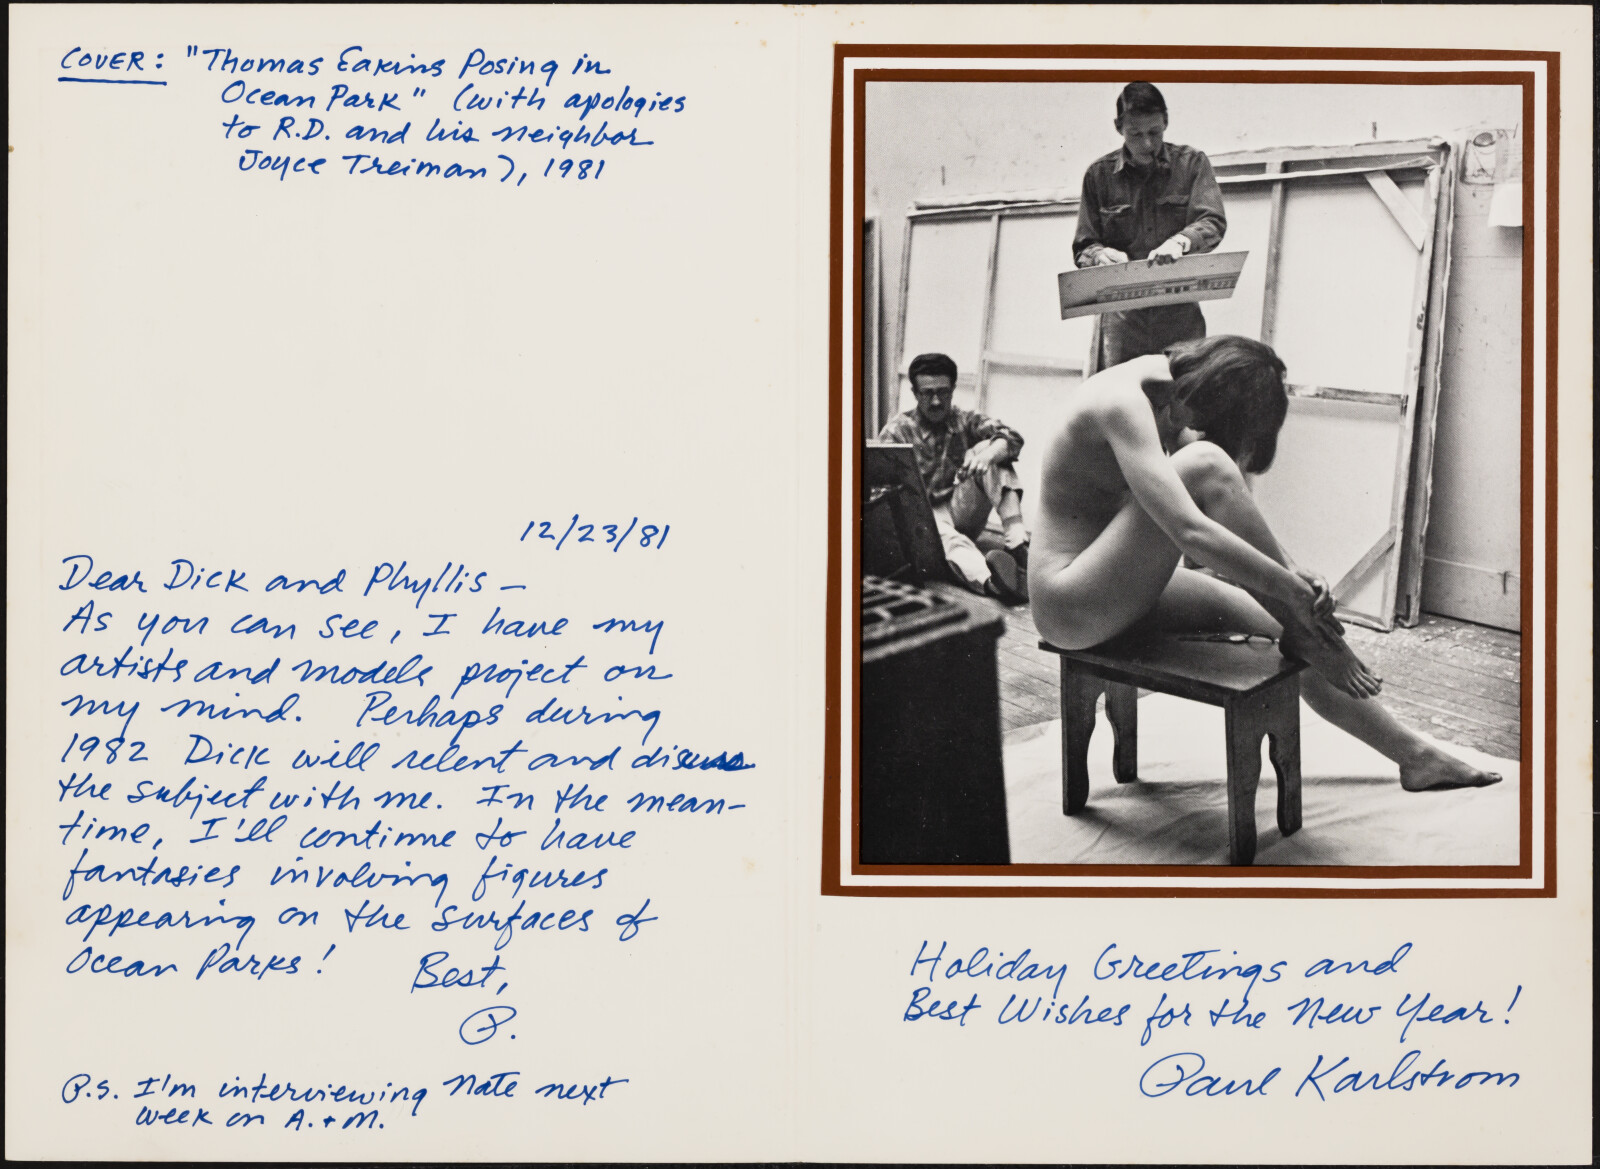 COVER: "Thomas Eakins Posing in
Ocean Park" (with apologies
to R.D. and his neighbor
Joyce Treiman), 1981
12/23/81
Dear Dick and Phyllis –
As you can see, I have my
artists and models project on
my mind. Perhaps during
1982 Dick will relent and discuss
the subject with me. In the mean-
time, I'll continue to have
fantasies involving figures
appearing on the surfaces of
Ocean Parks!
Best,
P.
P.S. I'm interviewing Nate next
week on A. + M.
Holiday Greetings and
Best Wishes for the New Year!
Paul Karlstrom